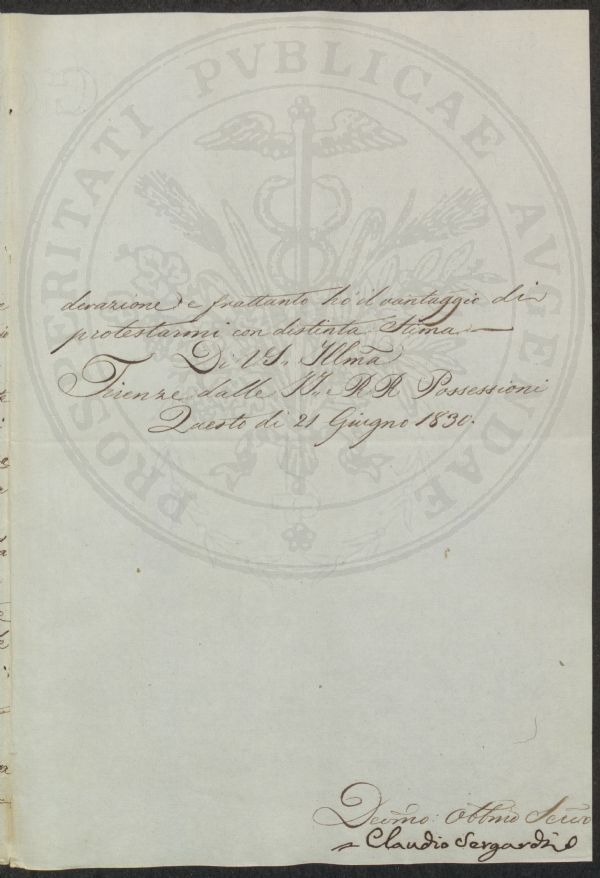 PROSPERITATI PVBLICAE AVGENDAE
derazione, e frattanto ho il vantaggio di
protestarmi con distinta Stima
Di VS. Illma
Firenze dalle II. e RR Possessioni
Questo di 21 Giugno 1830.
Devmo: Obbmo Servo
Claudio Sergardi